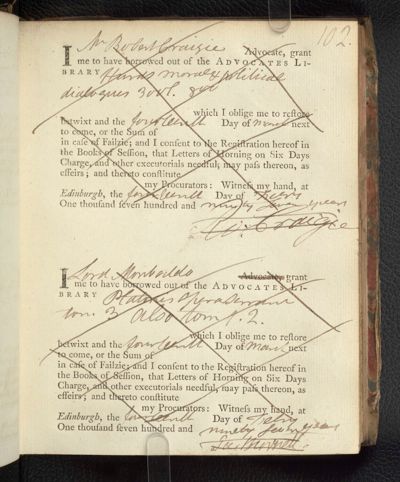 102.
I Mr Robert Craigie Advocate, grant
me to have borrowed out of the ADVOCATES LI-
BRARY Hurds moral & political
dialogues 3 vol. 8vo
which I oblige me to reſtore
betwixt and the fourteenth Day of March next
to come, or the Sum of
in caſe of Failzie; and I conſent to the Regiſtration hereof in
the Books of Seſſion, that Letters of Horning on Six Days
Charge, and other executorials needful, may paſs thereon, as
effeirs; and thereto conſtitute
my Procurators: Witneſs my hand, at
Edinburgh, the fourteenth Day of Febry
One thouſand ſeven hundred and ninety years
Craigie
I Lord Monboddo Advocate, grant
me to have borrowed out of the ADVOCATES LI-
BRARY Platonis Opera
tom. 3 also tom. 2.
which I oblige me to reſtore
betwixt and the fourteenth Day of March next
to come, or the Sum of
in caſe of Failzie; and I conſent to the Regiſtration hereof in
the Books of Seſſion, that Letters of Horning on Six Days
Charge, and other executorials needful, may paſs thereon, as
effeirs; and thereto conſtitute
my Procurators: Witneſs my hand, at
Edinburgh, the fourteenth Day of Febry
One thouſand ſeven hundred and ninety years